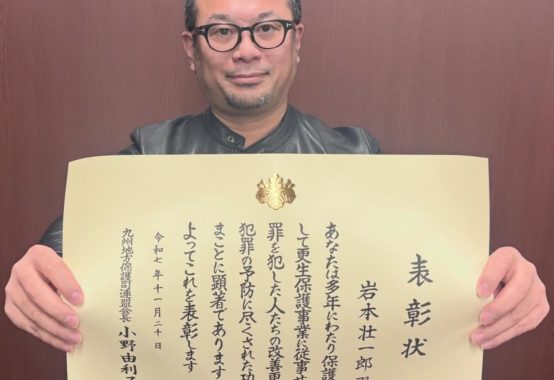 表彰状
岩本壮一郎
あなたは多年にわたり保護
して更生保護事業に従事せ
罪を犯した人たちの改善更
犯罪の予防に尽くされた功
まことに顕著であります
よってこれを表彰します
令和七年十一月二十日
九州地方保護司連盟会長 小野由利子